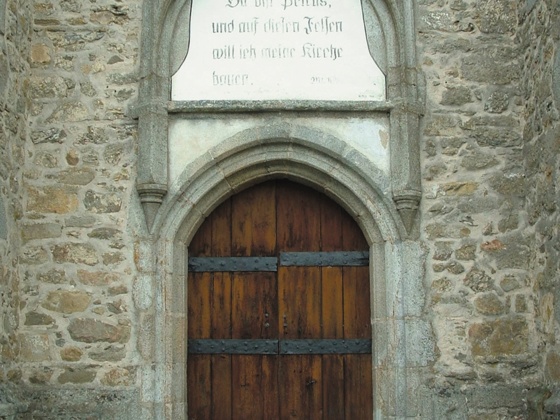 Du bist Petrus,
und auf diesen Felsen
will ich meine Kirche
bauen.